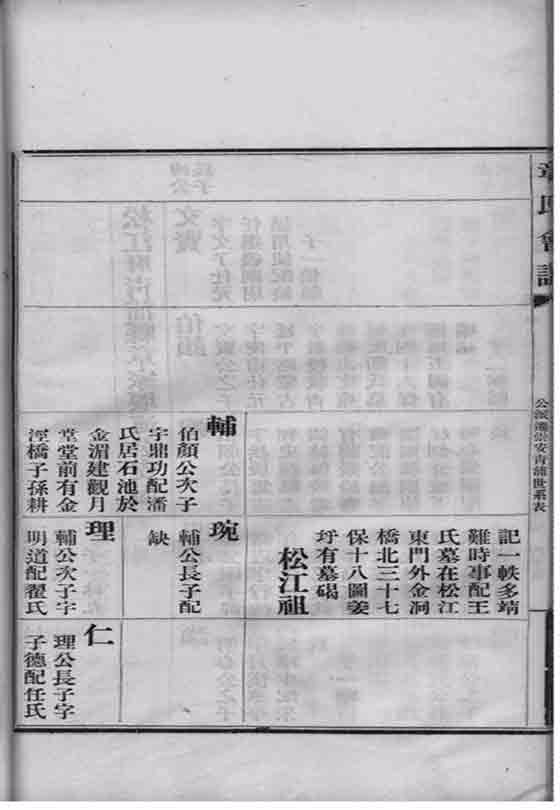 章氏會譜
公派遷崇安青蒲世系表
輔
伯顏公次子
字鼎功配潘
氏居石池於
金湄建觀月
堂堂前有金
涇橋子孫耕
記一軼多靖
難時事配王
氏墓在松江
東門外金洞
橋北三十七
保十八圖姜
圩有墓碣
松江祖
琬
輔公長子配
缺
理
輔公次子字
明道配翟氏
仁
理公長子字
子德配任氏